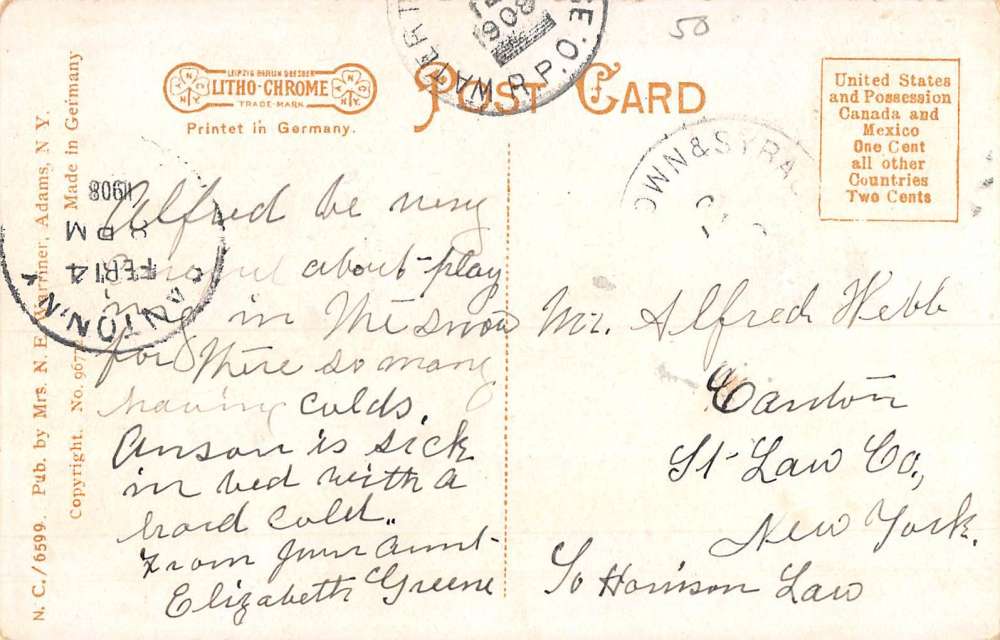 50
LEIPZIG BERLIN DRESDEN
LITHO-CHROME
TRADE-MARK
Printet in Germany.
POST CARD
United States
and Possession
Canada and
Mexico
One Cent
all other
Countries
Two Cents
N. C./6599. Pub. by Mrs. N. E. Warriner, Adams, N. Y.
Copyright. No. 967 Made in Germany
WATERT SE. R.P.O.
1908
OWN & SYRA
CANTON, N.Y.
FEB 14
8 PM
1908
Alfred be very
about play
ing in the snow
for there so many
having colds.
Anson is sick
in bed with a
hard cold..
From your aunt
Elizabeth Greene
Mr. Alfred Webb
Canton
St Law Co.,
New York.
To Harrison Law